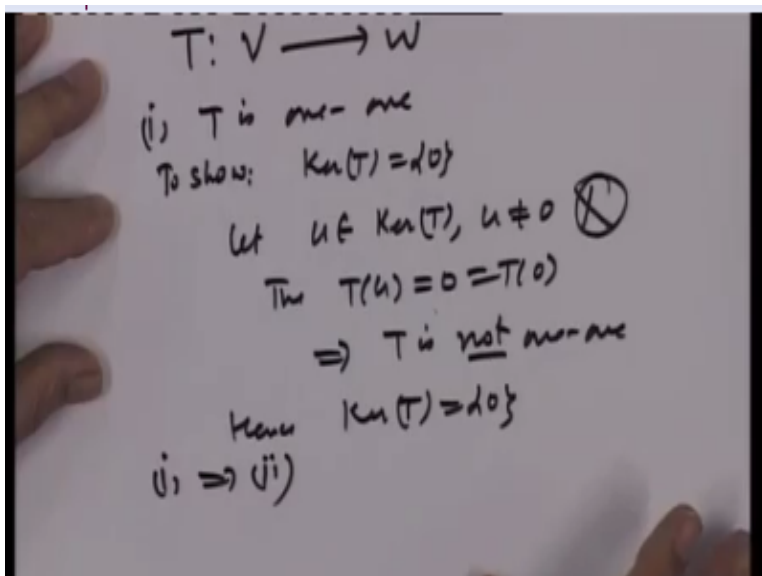 T: V ⟶ W
(i) T is one-one
To show: Ker(T) = {0}
Let u ∈ Ker(T), u ≠ 0
The T(u) = 0 = T(0)
⇒ T is not one-one
Hence Ker(T) = {0}
(i) ⇒ (ii)